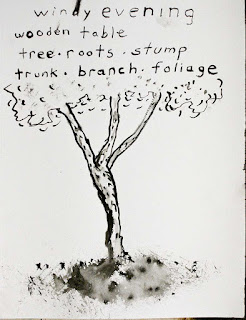 windy evening
wooden table
tree · roots · stump
trunk · branch · foliage